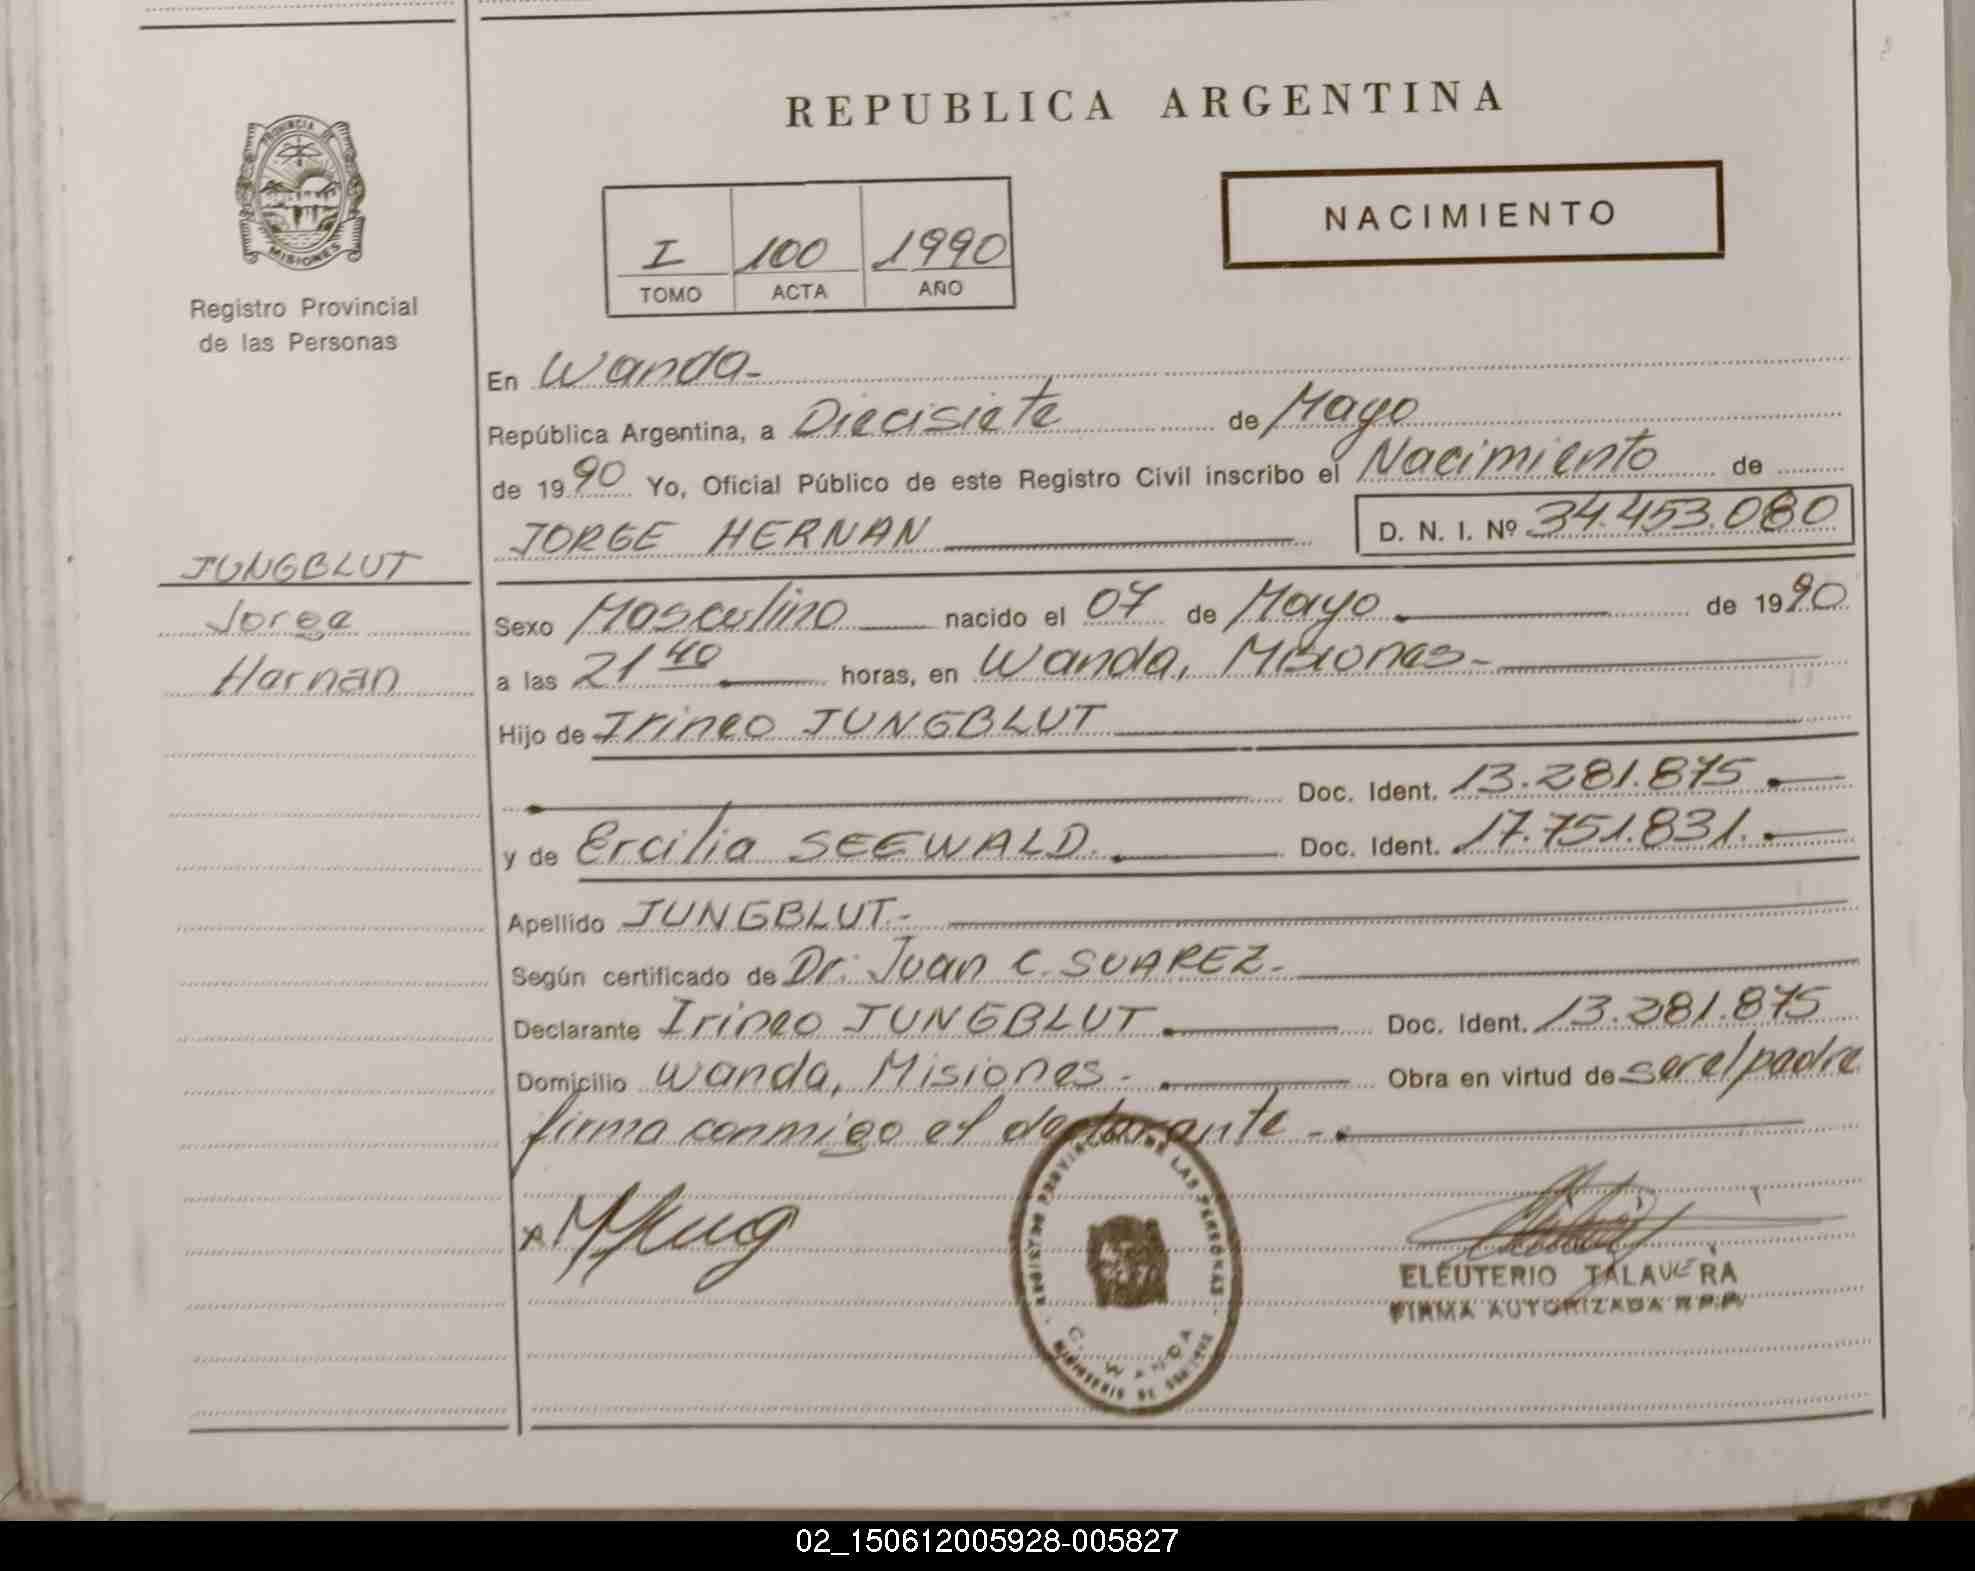 REPUBLICA ARGENTINA
NACIMIENTO
I 100 1990
TOMO ACTA AÑO
PROVINCIA DE
MISIONES
Registro Provincial
de las Personas
JUNGBLUT
Jorge
Hernan
En Wanda-
República Argentina, a Diecisiete de Mayo
de 1990 Yo, Oficial Público de este Registro Civil inscribo el Nacimiento de
JORGE HERNAN D. N. I. Nº 34.453.080
Sexo Masculino nacido el 07 de Mayo de 1990
a las 21 40 horas, en Wanda, Misiones-
Hijo de Irineo JUNGBLUT
Doc. Ident. 13.281.875
y de Ercilia SEEWALD. Doc. Ident. 17.751.831.
Apellido JUNGBLUT.-
Según certificado de Dr. Juan C. SUAREZ-
Declarante Irineo JUNGBLUT Doc. Ident. 13.281.875
Domicilio Wanda, Misiones- Obra en virtud de ser el padre
firma conmigo el declarante-
REGISTRO PROVINCIAL DE LAS PERSONAS
WANDA
ELEUTERIO TALAVERA
FIRMA AUTORIZADA R.P.P.
02_150612005928-005827